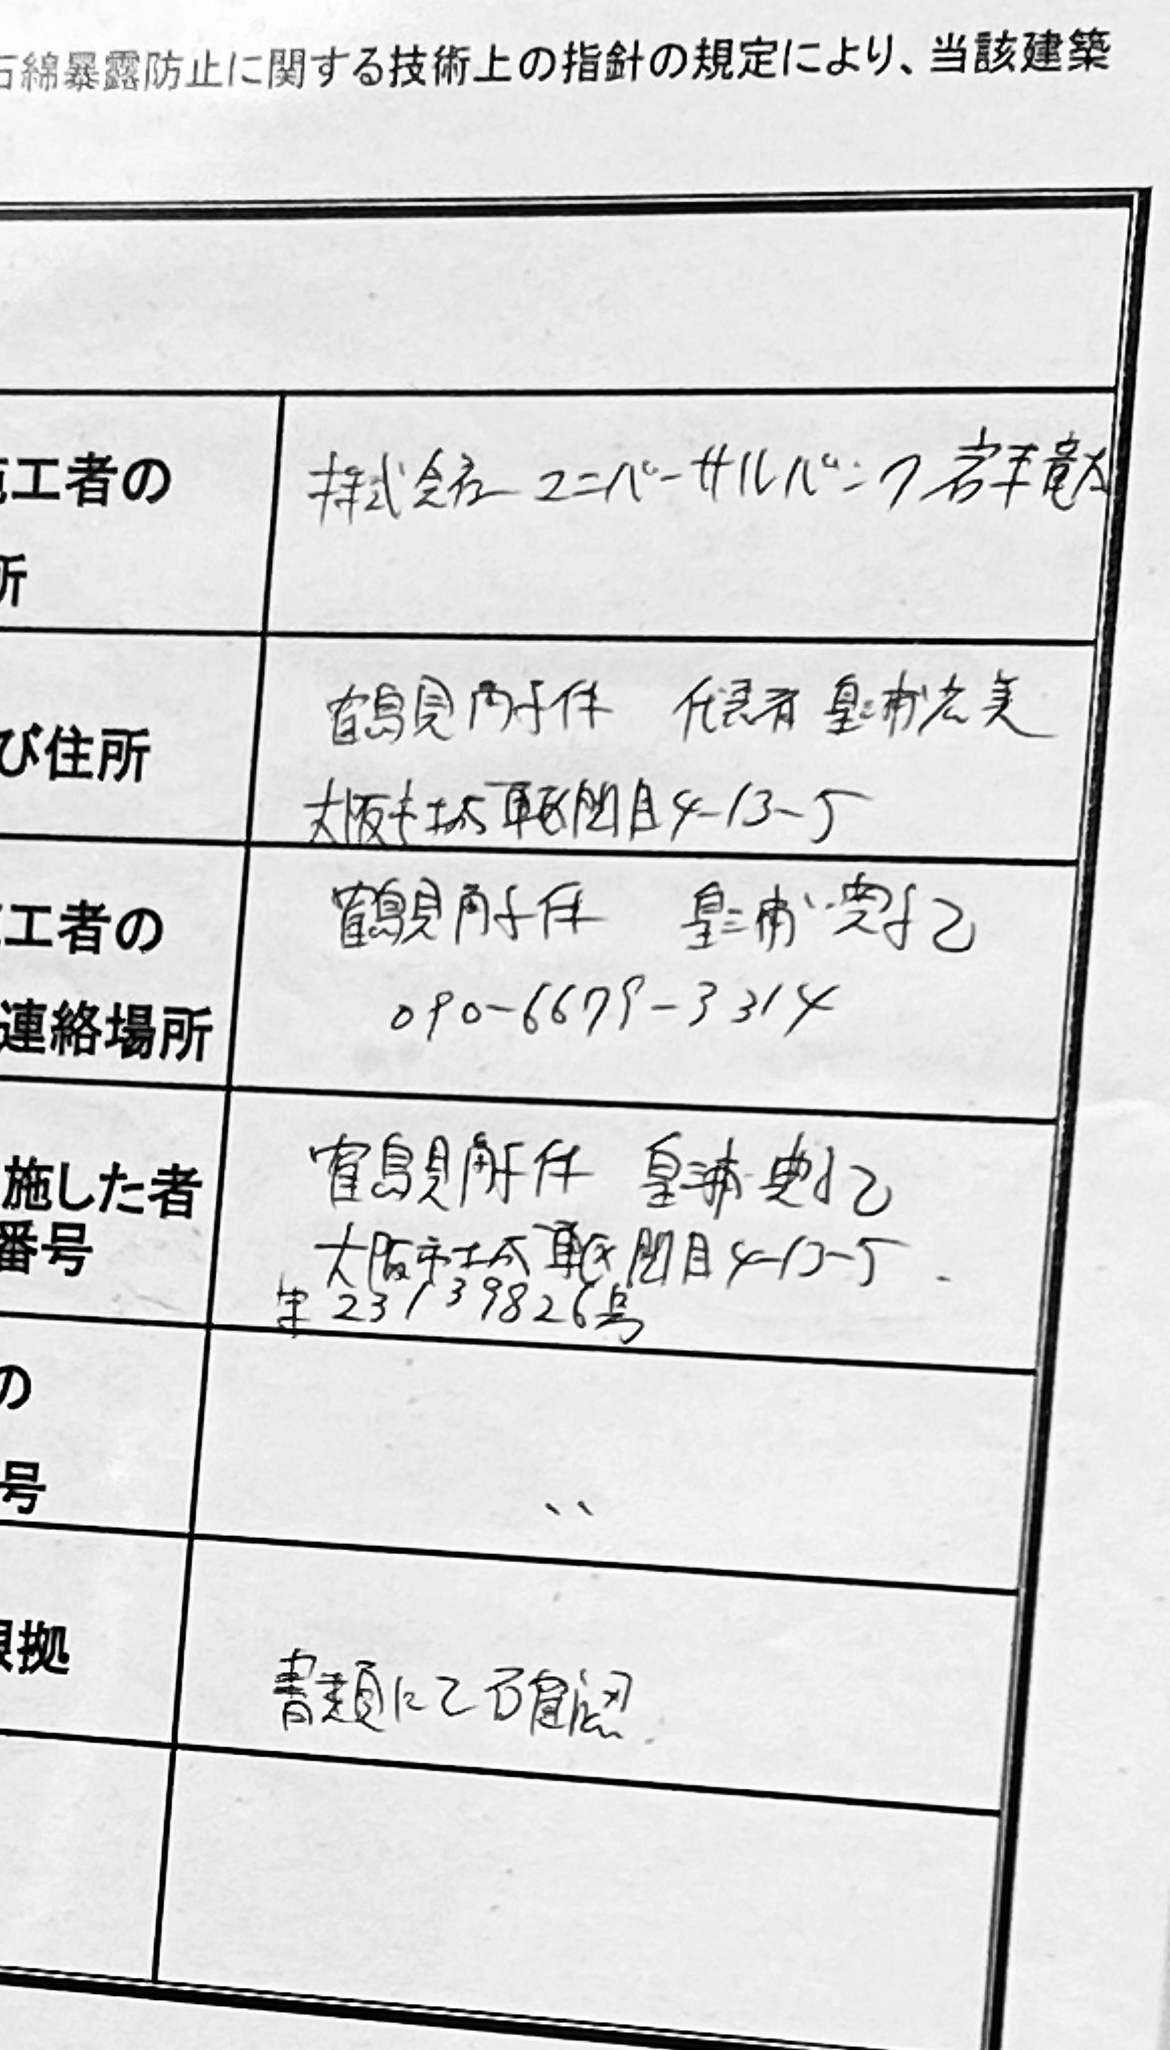 石綿暴露防止に関する技術上の指針の規定により、当該建築
施工者の
株式会社ユニバーサルバンク 岩本竜太
所
鶴見解体 代表者 皇甫宏美
び住所
大阪市城東区関目4-13-5
工者の
鶴見解体 皇甫
連絡場所
090-6679-3314
施した者
鶴見解体 皇甫
番号
大阪市城東区関目4-13-5
第23139826号
の
号
〃
根拠
書類にて確認